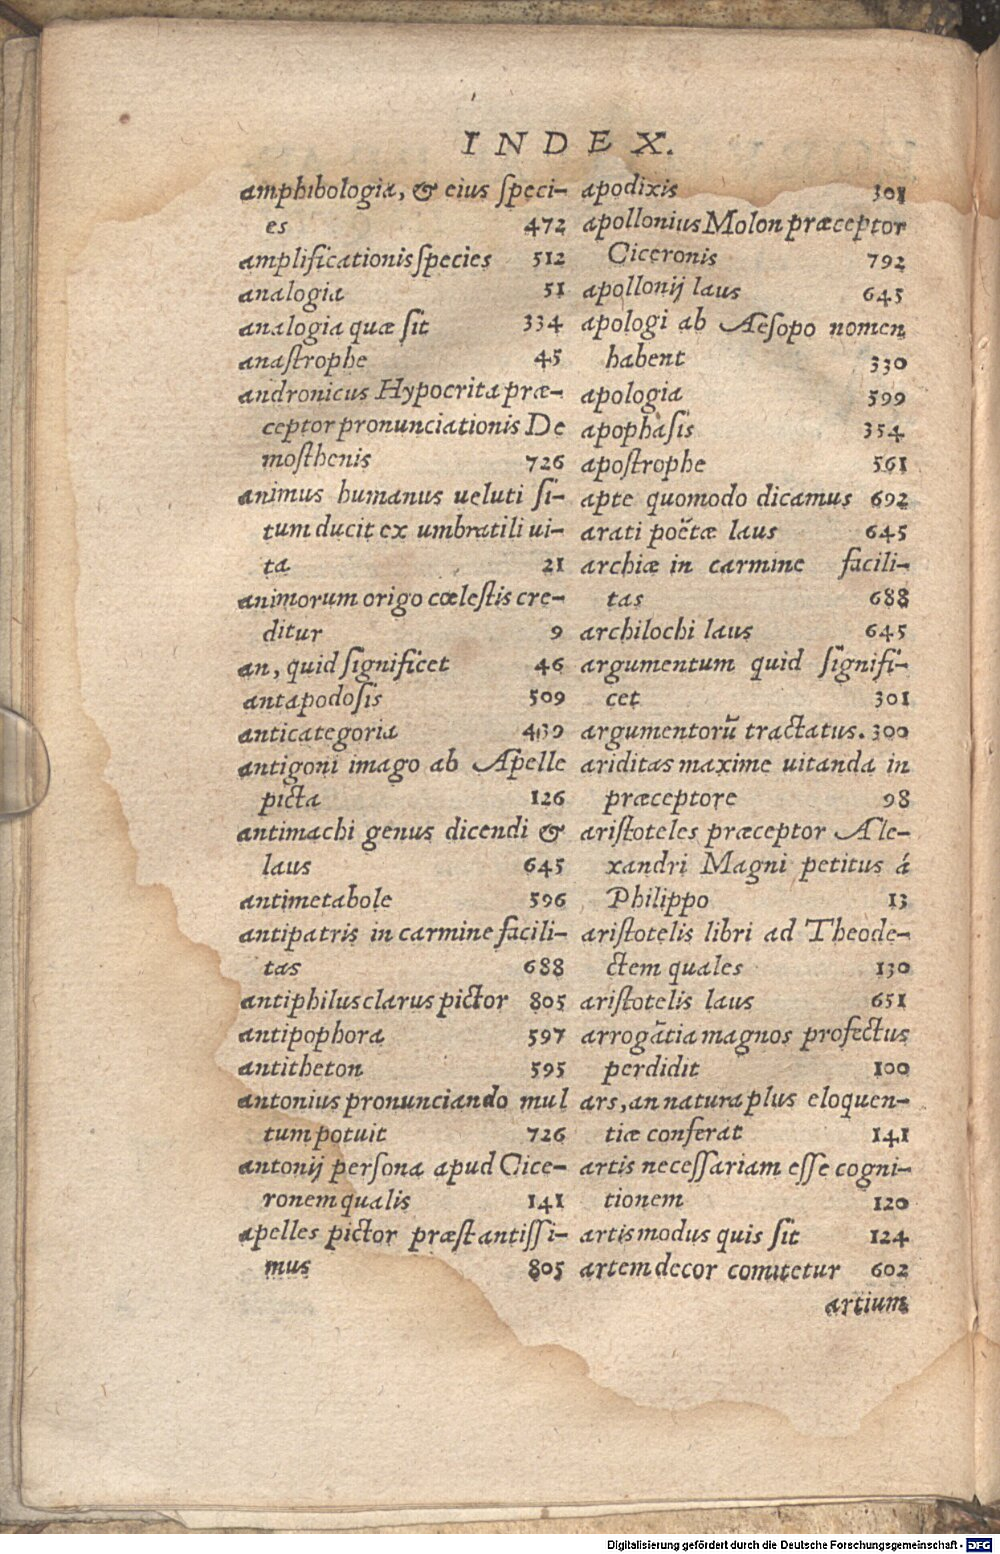 INDEX.
amphibologia, & eius speci-
es 472
amplificationis species 512
analogia 51
analogia quæ sit 334
anastrophe 45
andronicus Hypocrita præ-
ceptor pronunciationis De
mosthenis 726
animus humanus ueluti si-
tum ducit ex umbratili ui-
ta 21
animorum origo cœlestis cre-
ditur 9
an, quid significet 46
antapodosis 509
anticategoria
antigoni imago ab Apelle
picta 126
antimachi genus dicendi &
laus 645
antimetabole 596
antipatris in carmine facili-
tas 688
antiphilus clarus pictor 805
antipophora 597
antitheton 595
antonius pronunciando mul
tum potuit 726
antonij persona apud Cice-
ronem qualis 141
apelles pictor præstantissi-
mus 805
apodixis 301
apollonius Molon præceptor
Ciceronis 792
apollonij laus 645
apologi ab Aesopo nomen
habent 330
apologia 599
apophasis 354
apostrophe 561
apte quomodo dicamus 692
arati poëtæ laus 645
archiæ in carmine facili-
tas 688
archilochi laus 645
argumentum quid signifi-
cet 301
argumentorũ tractatus. 300
ariditas maxime uitanda in
præceptore 98
aristoteles præceptor Ale-
xandri Magni petitus á
Philippo 13
aristotelis libri ad Theode-
ctem quales 130
aristotelis laus 651
arrogãtia magnos profectus
perdidit 100
ars, an natura plus eloquen-
tiæ conferat 141
artis necessariam esse cogni-
tionem 120
artis modus quis sit 124
artem decor comitetur 602
artium
Digitalisierung gefördert durch die Deutsche Forschungsgemeinschaft - DFG